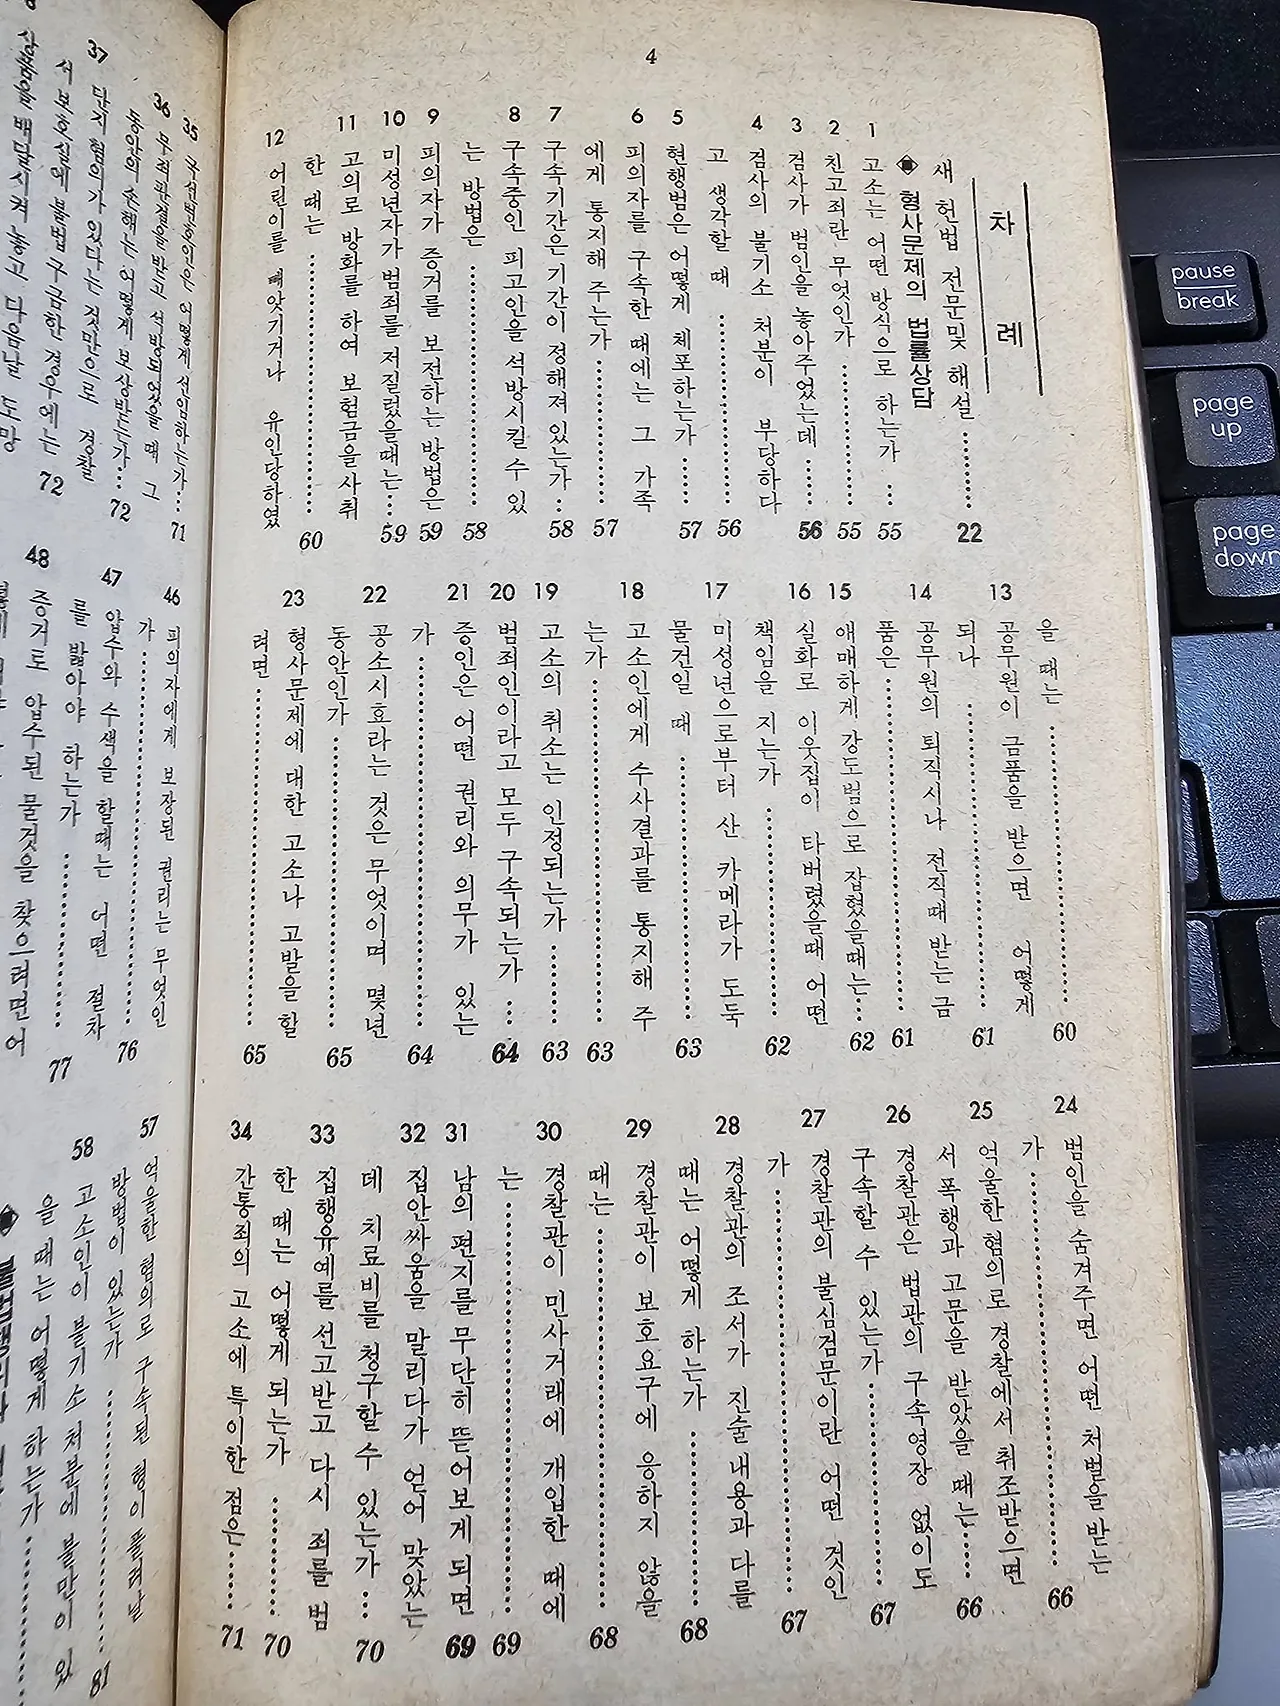 4
차 례
새 헌법 전문및 해설 ………… 22
◈ 형사문제의 법률상담
1 고소는 어떤 방식으로 하는가 … 55
2 친고죄란 무엇인가 ………… 55
3 검사가 범인을 놓아주었는데 …… 56
4 검사의 불기소 처분이 부당하다
고 생각할 때 ………… 56
5 현행범은 어떻게 체포하는가 …… 57
6 피의자를 구속한 때에는 그 가족
에게 통지해 주는가 ………… 57
7 구속기간은 기간이 정해져 있는가 … 58
8 구속중인 피고인을 석방시킬 수 있
는 방법은 ………… 58
9 피의자가 증거를 보전하는 방법은 59
10 미성년자가 범죄를 저질렀을때는 … 59
11 고의로 방화를 하여 보험금을 사취
한 때는 ………… 60
12 어린이를 빼앗기거나 유인당하였
을 때는 ………… 60
13 공무원이 금품을 받으면 어떻게
되나 ………… 61
14 공무원의 퇴직시나 전직때 받는 금
품은 ………… 61
15 애매하게 강도범으로 잡혔을때는 … 62
16 실화로 이웃집이 타버렸을때 어떤
책임을 지는가 ………… 62
17 미성년으로부터 산 카메라가 도둑
물건일 때 ………… 63
18 고소인에게 수사결과를 통지해 주
는가 ………… 63
19 고소의 취소는 인정되는가 …… 63
20 범죄인이라고 모두 구속되는가 … 64
21 증인은 어떤 권리와 의무가 있는
가 ………… 64
22 공소시효라는 것은 무엇이며 몇년
동안인가 ………… 65
23 형사문제에 대한 고소나 고발을 할
려면 ………… 65
24 범인을 숨겨주면 어떤 처벌을 받는
가 ………… 66
25 억울한 혐의로 경찰에서 취조받으면
서 폭행과 고문을 받았을 때는 …… 66
26 경찰관은 법관의 구속영장 없이도
구속할 수 있는가 ………… 67
27 경찰관의 불심검문이란 어떤 것인
가 ………… 67
28 경찰관의 조서가 진술내용과 다를
때는 어떻게 하는가 ………… 68
29 경찰관이 보호요구에 응하지 않을
때는 ………… 68
30 경찰관이 민사거래에 개입한 때에
는 ………… 69
31 남의 편지를 무단히 뜯어보게 되면 69
32 집안싸움을 말리다가 얻어 맞았는
데 치료비를 청구할 수 있는가 … 70
33 집행유예를 선고받고 다시 죄를 범
한 때는 어떻게 되는가 ………… 70
34 간통죄의 고소에 특이한 점은 …… 71
35 국선변호인은 어떻게 선임하는가 … 71
36 무죄판결을 받고 석방되었을 때 그
동안의 손해는 어떻게 보상받는가 … 72
37 단지 혐의가 있다는 것만으로 경찰
서 보호실에 불법 구금한 경우에는 72
상품을 배달시켜 놓고 다음날 도망
46 피의자에게 보장된 권리는 무엇인
가 ………… 76
47 압수와 수색을 할때는 어떤 절차
를 밟아야 하는가 ………… 77
48 증거로 압수된 물것을 찾으려면 어
57 억울한 혐의로 구속된 형이 풀려날
방법이 있는가 ………… 81
58 고소인이 불기소 처분에 불만이 있
을 때는 어떻게 하는가 …………
pause
break
page
up
page
down